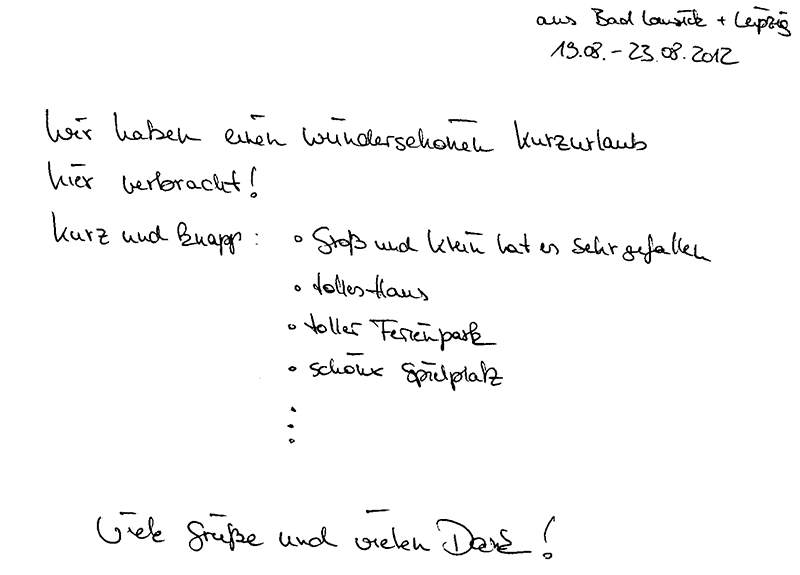 aus Bad Lausick + Leipzig
19.08. - 23.08.2012
Wir haben einen wunderschönen Kurzurlaub
hier verbracht!
Kurz und knapp: • Groß und Klein hat es sehr gefallen
• tolles Haus
• toller Ferienpark
• schöner Spielplatz
⋮
Viele Grüße und vielen Dank!